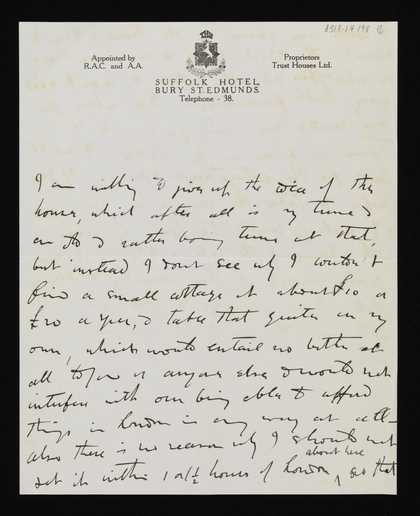 Appointed by
R.A.C. and A.A.
Proprietors
Trust Houses Ltd.
SUFFOLK HOTEL,
BURY ST. EDMUNDS.
Telephone - 38.
I am willing to give up the idea of the
house, which after all is my
rather boring at that,
but instead I dont see why I couldn't
find a small cottage at about £10 or
£20 a year, & take that quite on my
own, which would entail no bother at
all to you or anyone else & would not
interfere with our being able to afford
things in London in any way at all -
also there is no reason why I should not
get it within 1 or 1½ hours of London, about here
so that